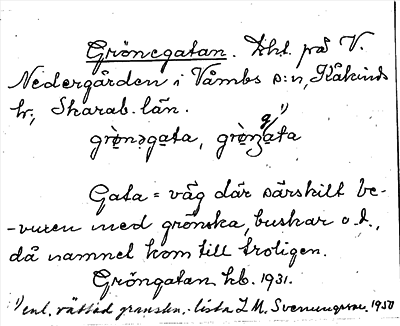 Grönegatan. Lht. på V.
Nedergården i Våmbs s:n, Kåkinds
hr, Skarab. län.
grò̤nəgata, grò̤nga̤ta g/ ¹)
Gata = väg där särskilt be-
-vuxen med grönska, buskar o.d.,
då namnet kom till troligen.
Gröngatan hb. 1931.
¹) enl. rättad granskn.-lista I.M. Svenungsson 1950